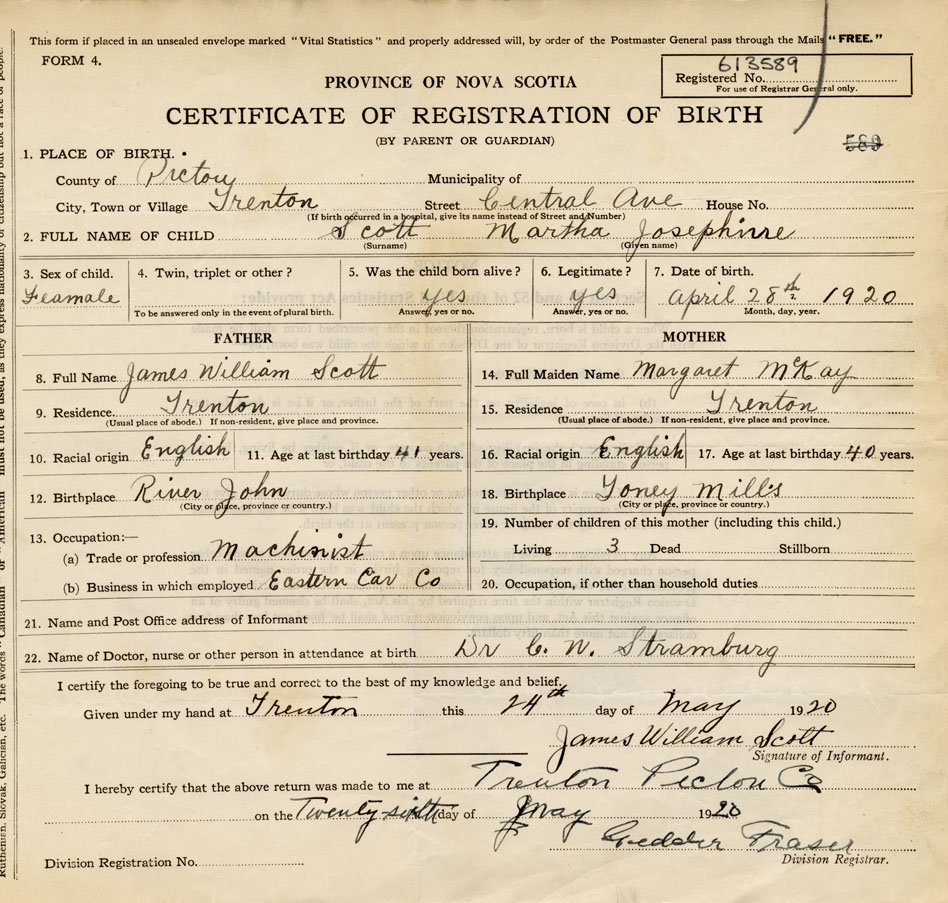 This form if placed in an unsealed envelope marked "Vital Statistics" and properly addressed will, by order of the Postmaster General pass through the Mails "FREE."
FORM 4.
613589
Registered No.
For use of Registrar General only.
PROVINCE OF NOVA SCOTIA
CERTIFICATE OF REGISTRATION OF BIRTH
(BY PARENT OR GUARDIAN)
589
1. PLACE OF BIRTH.
County of Pictou Municipality of
City, Town or Village Trenton Street Central Ave House No.
(If birth occurred in a hospital, give its name instead of Street and Number)
2. FULL NAME OF CHILD Scott Martha Josephine
(Surname) (Given name)
3. Sex of child. 4. Twin, triplet or other? 5. Was the child born alive? 6. Legitimate? 7. Date of birth.
Feamale yes yes April 28th 1920
To be answered only in the event of plural birth. Answer, yes or no. Answer, yes or no. Month, day, year.
FATHER MOTHER
8. Full Name James William Scott 14. Full Maiden Name Margaret McKay
9. Residence. Trenton 15. Residence Trenton
(Usual place of abode.) If non-resident, give place and province. (Usual place of abode.) If non-resident, give place and province.
10. Racial origin English 11. Age at last birthday 41 years. 16. Racial origin English 17. Age at last birthday 40 years.
12. Birthplace River John 18. Birthplace Toney Mills
(City or place, province or country.) (City or place, province or country.)
13. Occupation:— 19. Number of children of this mother (including this child.)
(a) Trade or profession Machinist Living 3 Dead Stillborn
(b) Business in which employed Eastern Car Co 20. Occupation, if other than household duties
21. Name and Post Office address of Informant
22. Name of Doctor, nurse or other person in attendance at birth Dr C. W. Stramburg
I certify the foregoing to be true and correct to the best of my knowledge and belief.
Given under my hand at Trenton this 24th day of May 1920
James William Scott
Signature of Informant.
I hereby certify that the above return was made to me at Trenton Pictou Co
on the Twenty sixth day of May 1920
Fraser
Division Registration No. Division Registrar.